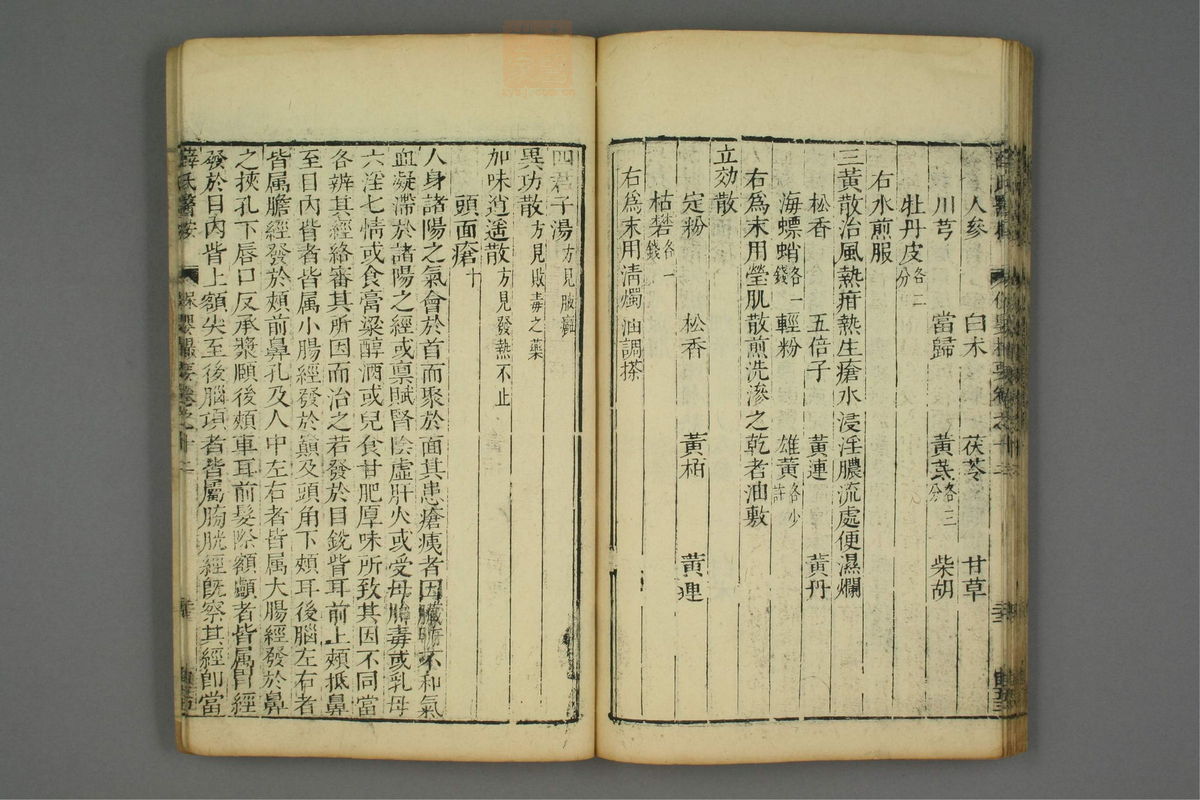 人參　白朮　茯苓　甘草
川芎　當歸　黃芪各三分　柴胡
牡丹皮各二分
右水煎服
三黃散治風熱疳熱生瘡水浸淫膿流處便濕爛
松香　五倍子　黃連　黃丹
海螵蛸各一錢　輕粉　雄黃各少許
右爲末用瑩肌散煎洗滲之乾者油敷
立効散
定粉　松香　黃栢　黃連
枯礬各一錢
右爲末用清燭油調搽
四君子湯方見腹癰
異功散方見敗毒之藥
加味逍遙散方見發熱不止
頭面瘡十
人身諸陽之氣會於首而聚於面其患瘡痍者因臟腑不和氣
血凝滯於諸陽之經或禀賦腎陰虛肝火或受母胎毒或乳母
六淫七情或食膏粱醇酒或兒食甘肥厚味所致其因不同當
各辨其經絡審其所因而治之若發於目銳眥耳前上頰抵鼻
至目內眥者皆属小腸經發於巔及頭角下頰耳後腦左右者
皆属膽經發於頰前鼻孔及人中左右者皆属大腸經發於鼻
之挾孔下唇口反承漿頤後頰車耳前髮際額顱者皆属胃經
發於目內眥上額尖至後腦項者皆屬膀胱經既察其經卽當
薛氏醫按　保嬰撮要卷之十二